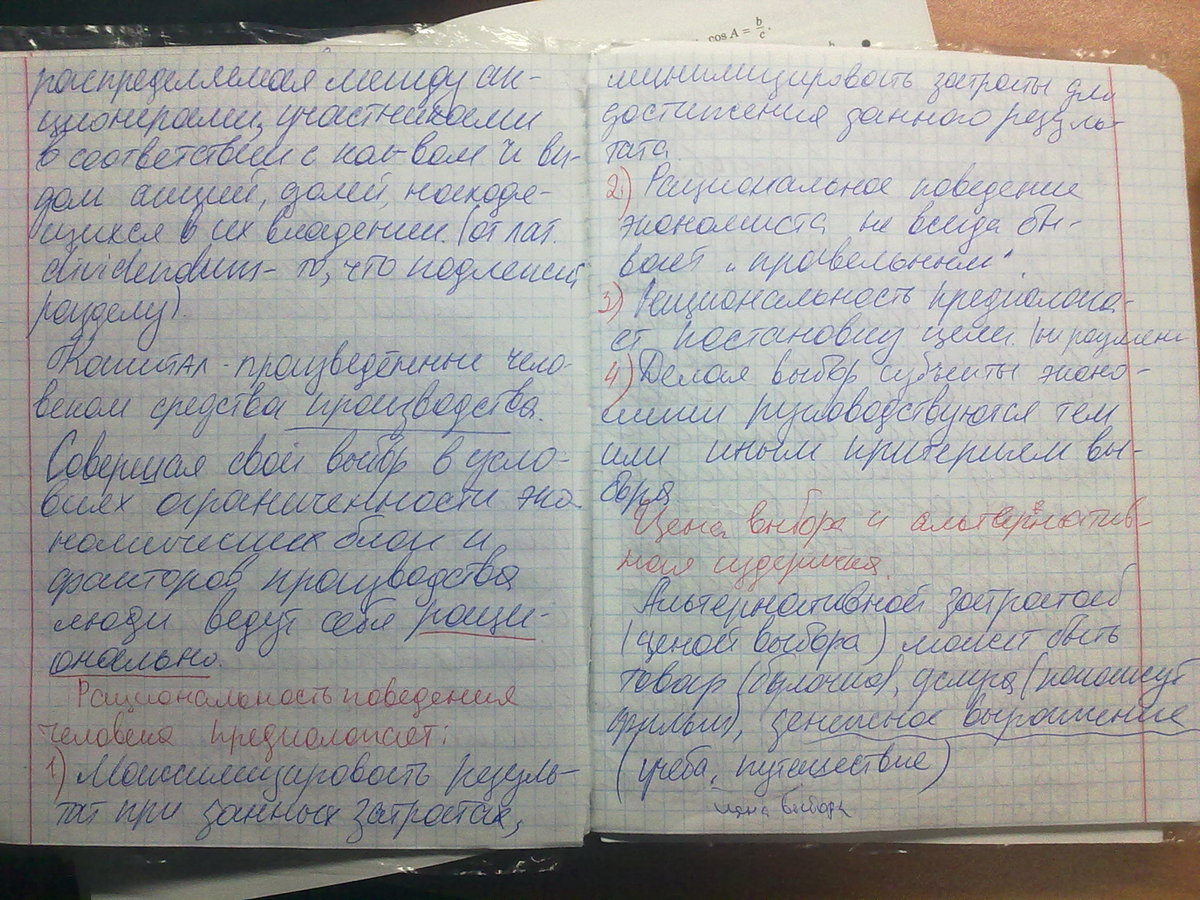 cos A = b/c.
распределяемая между ак-
ционерами, участниками
в соответствии с кол-вом и ви-
дом акций, долей, находя-
щихся в их владении. (от лат.
dividendum - то, что подлежит
разделу).
Капитал - произведённые чело-
веком средства производства.
Совершая свой выбор в усло-
виях ограниченности эко-
номических благ и
факторов производства
люди ведут себя раци-
онально.
Рациональность поведения
человека предполагает:
1) Максимизировать резуль-
тат при данных затратах,
минимизировать затраты для
достижения данного резуль-
тата.
2) Рациональное поведение
экономиста не всегда бы-
вает „правельным“.
3) Рациональность предполага-
ет постановку цели.
4) Делая выбор субъекты эконо-
мики руководствуются тем
или иным критерием вы-
бора
Цена выбора и альтернатив-
ная издержка.
Альтернативной затратой
(ценой выбора) может быть
товар (булочка), услуга
фильм), денежное выражение
(учёба, путешествие)
цена выбора